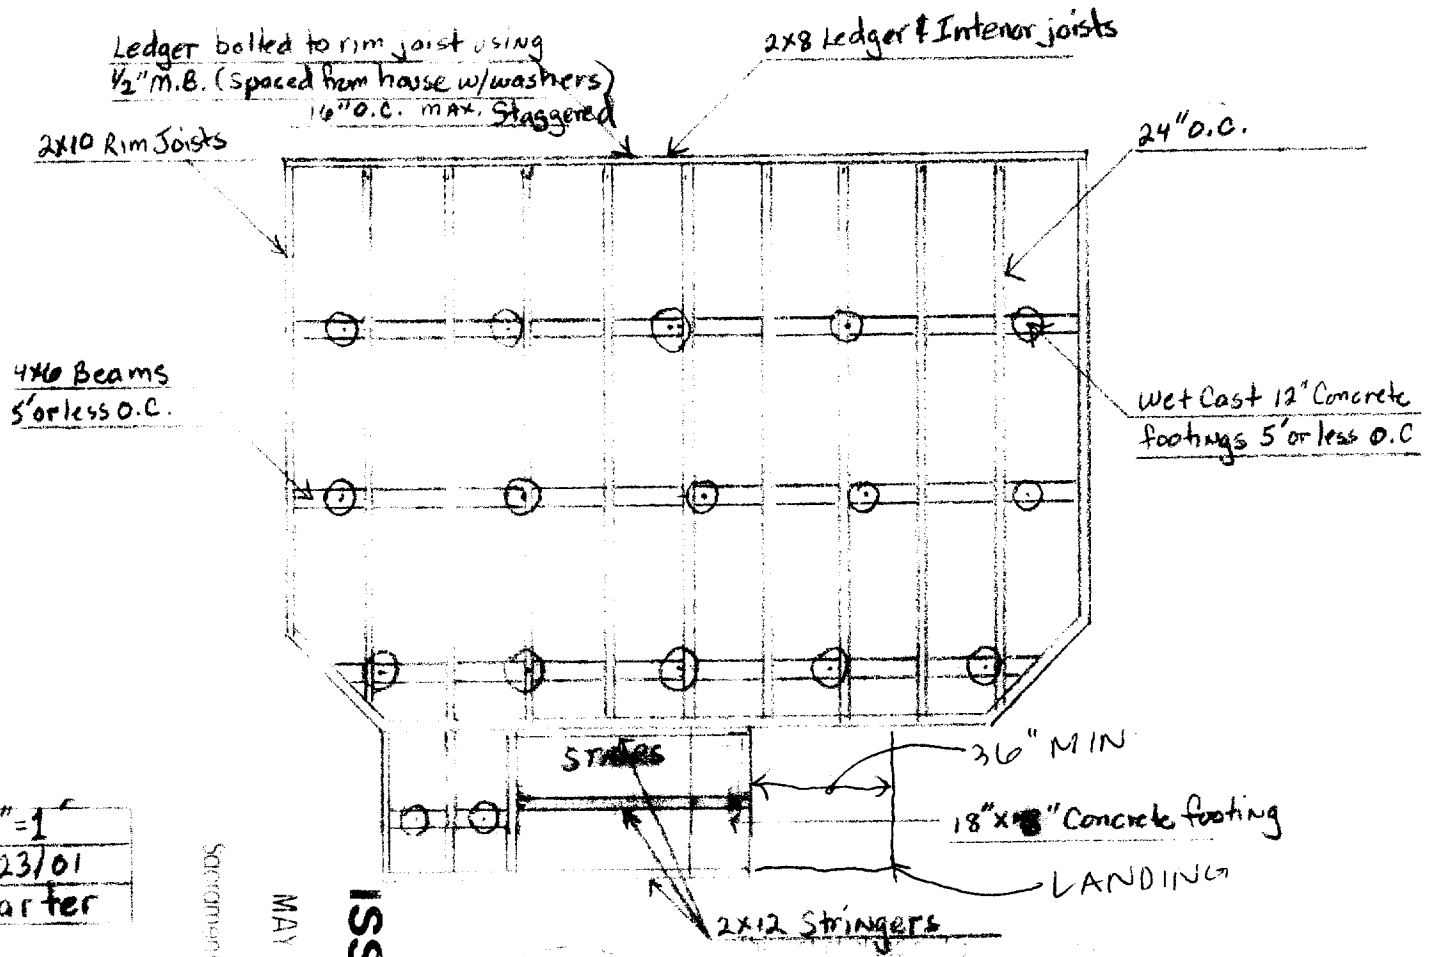 Ledger bolted to rim joist using
1/2" M.B. (spaced from house w/washers)
16" O.C. MAX. Staggered
2x8 Ledger & Interior joists
2x10 Rim Joists
24" O.C.
4x6 Beams
5' or less O.C.
Wet Cast 12" Concrete
footings 5' or less O.C
STAIRS
36" MIN
18"x Concrete footing
LANDING
2x12 Stringers
"=1'
23/01
arter
Sacramen
MAY
ISS